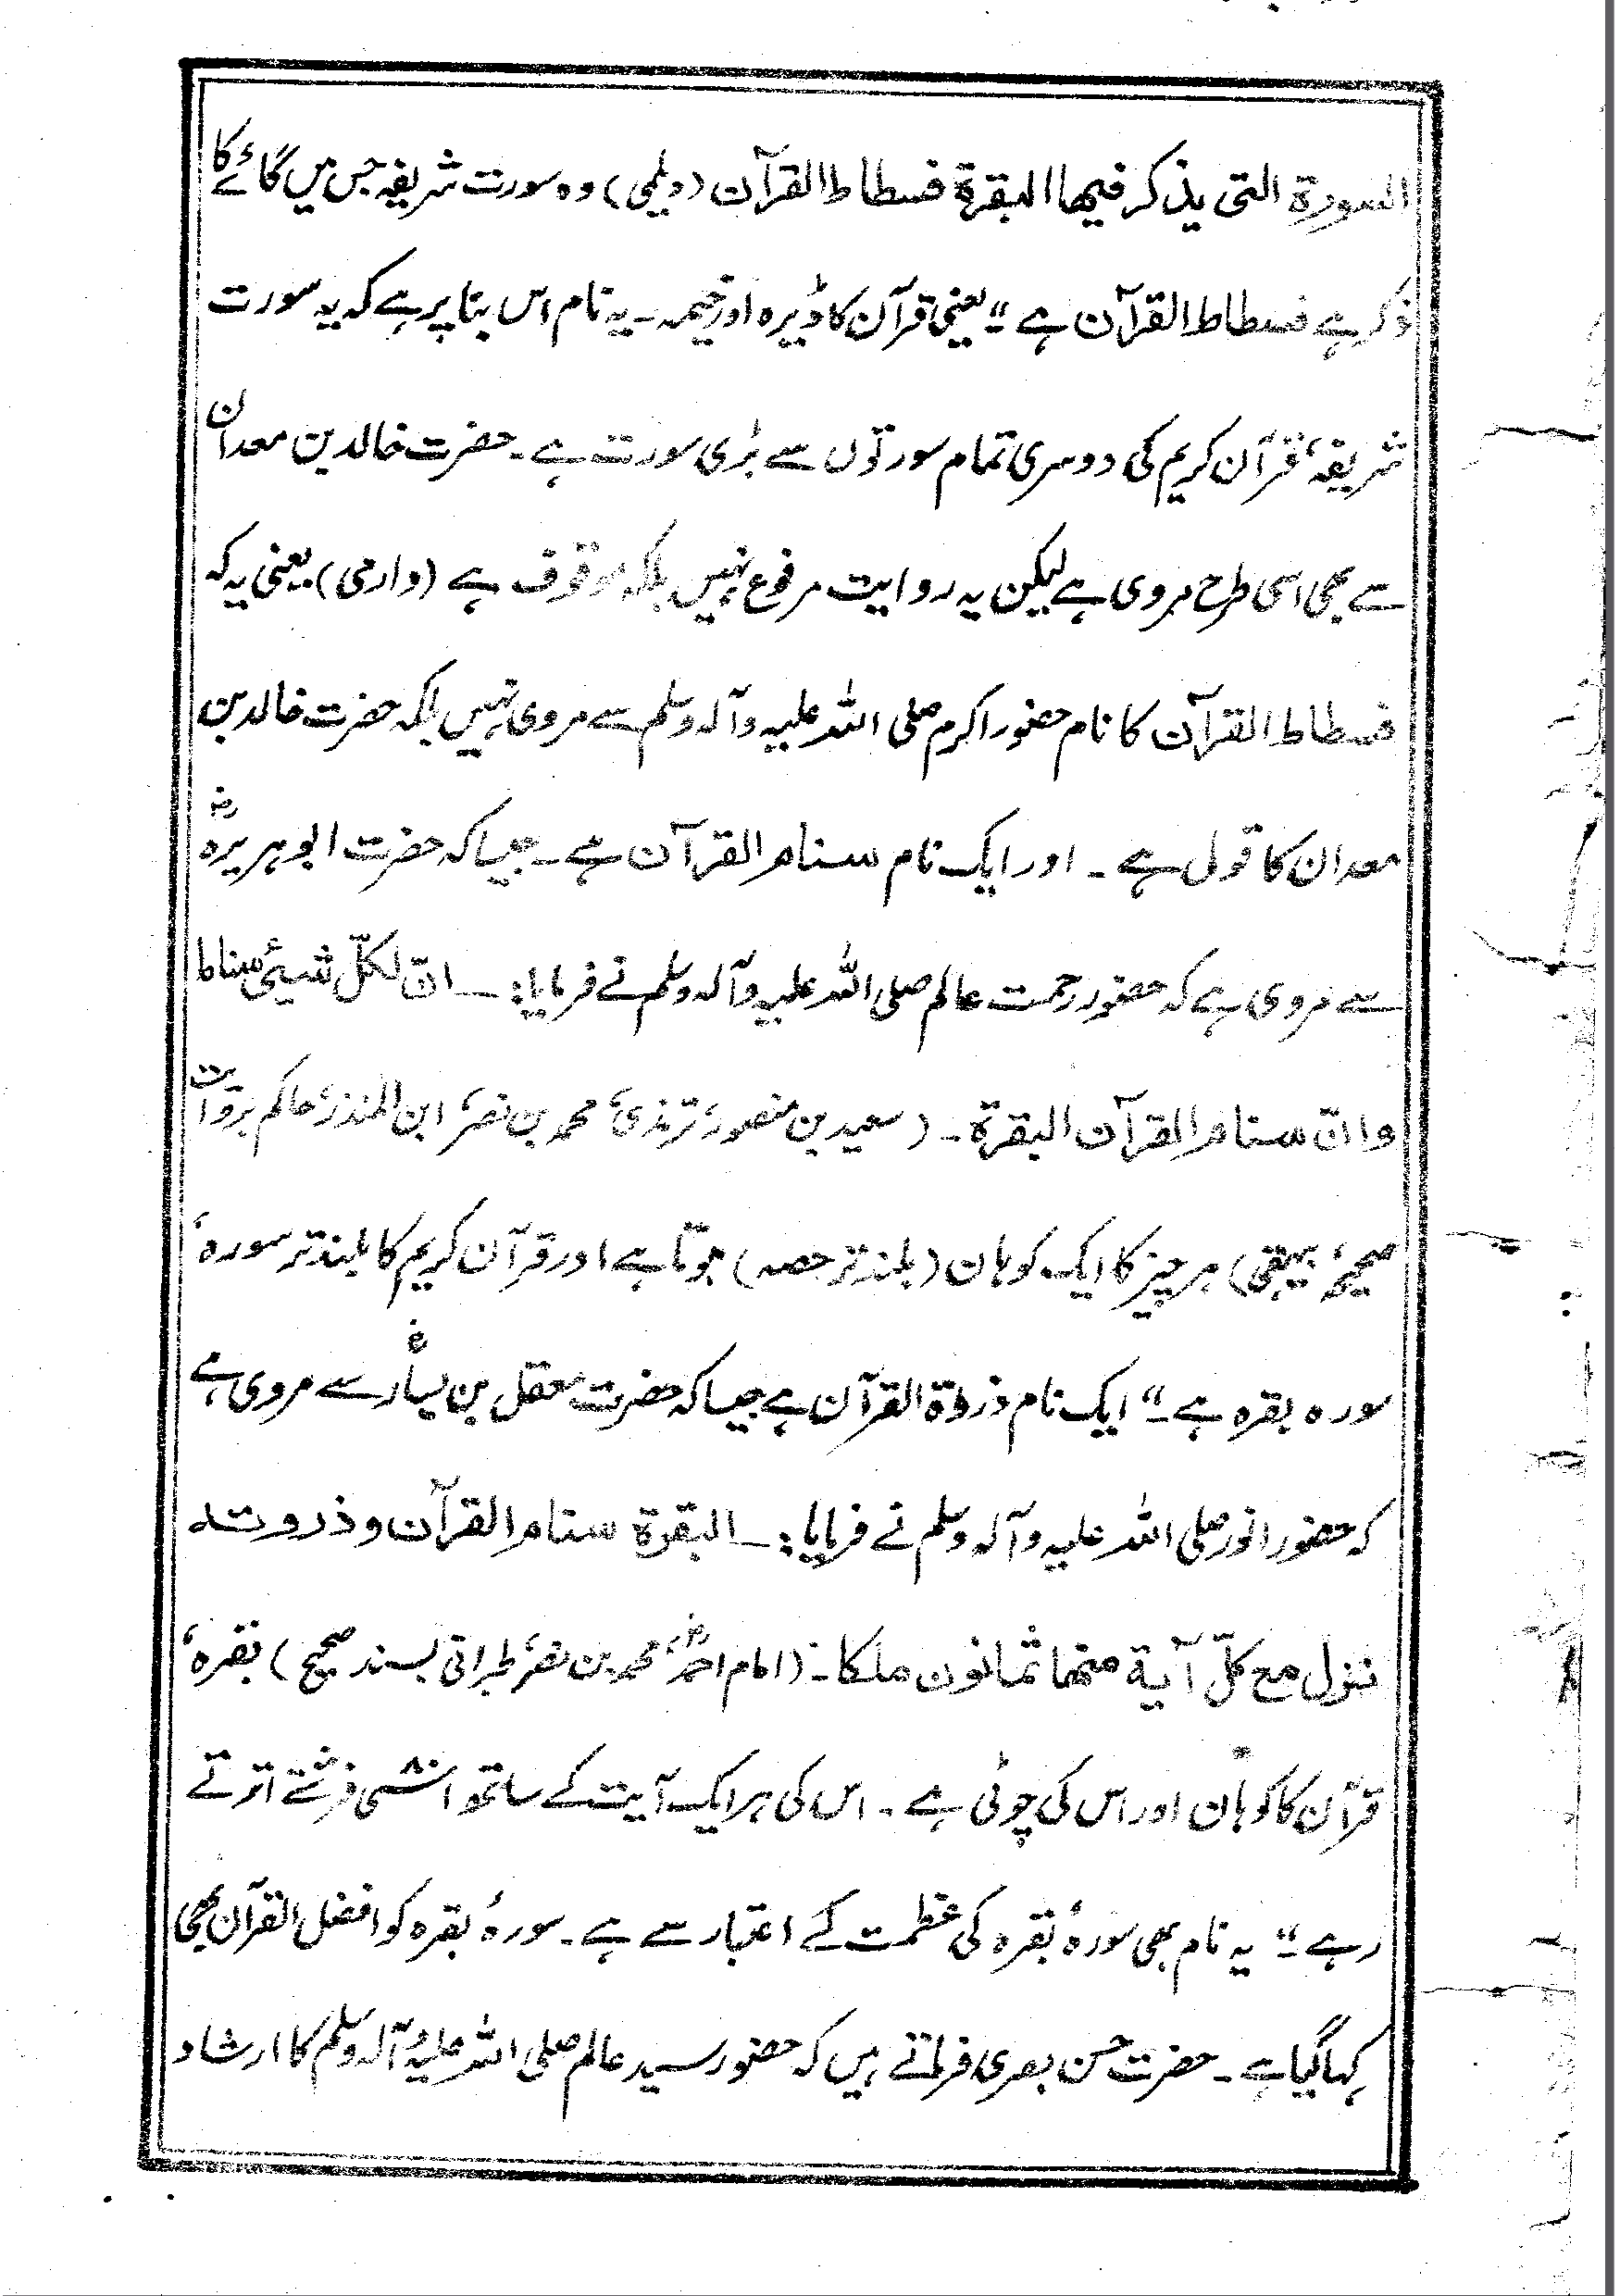 السورة التی یذکر فیھا البقرة فسطاط القرآن (دیلمی) وہ سورت شریفہ جس میں گائے کا
ذکر ہے فسطاط القرآن ہے ‟۔ یعنی قرآن کا ڈیرہ اور خیمہ ۔ یہ نام اس بنا پر ہے کہ یہ سورت
شریفہ، قرآن کریم کی دوسری تمام سورتوں سے بڑی سورت ہے ۔ حضرت خالد بن معدان
سے بھی اسی طرح مروی ہے لیکن یہ روایت مرفوع نہیں بلکہ موقوف ہے (دارمی) یعنی یہ کہ
فسطاط القرآن کا نام حضور اکرم صلی اللہ علیہ وآلہ وسلم سے مروی نہیں بلکہ حضرت خالد بن
معدان کا قول ہے ۔ اور ایک نام سنام القرآن ہے ۔ جیسا کہ حضرت ابو ہریرہؓ
سے مروی ہے کہ حضور رحمت عالم صلی اللہ علیہ وآلہ وسلم نے فرمایا :۔ انّ لکلّ شیئی سناما
وانّ سنام القرآن البقرة ۔ (سعید بن منصور، ترمذی، محمد بن نصر، ابن المنذر، حاکم بروایت
صحیحہ، بیہقی) ہر چیز کا ایک کوہان (بلند تر حصہ) ہوتا ہے اور قرآن کریم کا بلند تر سورہ،
سورہ بقرہ ہے ۔‟ ایک نام ذروة القرآن ہے جیسا کہ حضرت معقل بن یسارؓ سے مروی ہے
کہ حضور انور صلی اللہ علیہ وآلہ وسلم نے فرمایا :۔ البقرة سنام القرآن وذروتہ
نزل مع کلّ آیة منھا ثمانون ملکا ۔ (امام احمدؒ، محمد بن نصر، طبرانی بسند صحیح) بقرہ،
قرآن کا کوہان اور اس کی چوٹی ہے ۔ اس کی ہر ایک آیت کے ساتھ اسّی فرشتے اترتے
رہے ۔‟ یہ نام بھی سورۂ بقرہ کی عظمت کے اعتبار سے ہے ۔ سورۂ بقرہ کو افضل القرآن بھی
کہا گیا ہے ۔ حضرت حسن بصری فرماتے ہیں کہ حضور سید عالم صلی اللہ علیہ وآلہ وسلم کا ارشاد